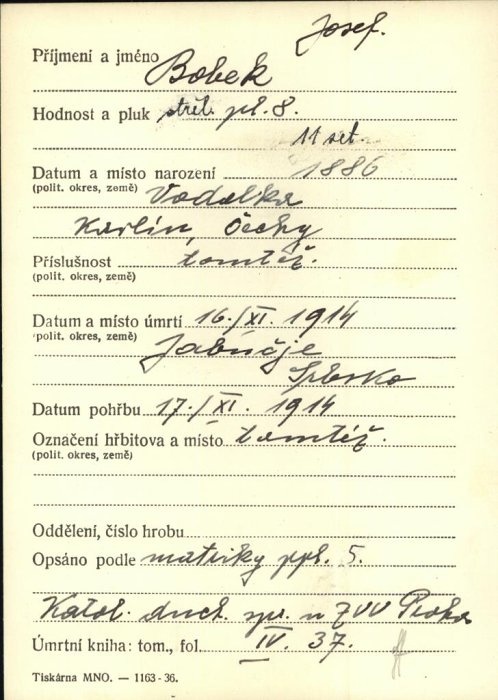 Josef.
Příjmení a jméno Bobek
Hodnost a pluk střel. pl. 8.
11 set.
Datum a místo narození 1886
(polit. okres, země) Vodolka
Karlín, Čechy
Příslušnost tomtéž.
(polit. okres, země)
Datum a místo úmrtí 16./XI. 1914
(polit. okres, země) Jabučje
Srbsko
Datum pohřbu 17./XI. 1914
Označení hřbitova a místo tomtéž.
(polit. okres, země)
Oddělení, číslo hrobu
Opsáno podle matriky ppl. 5.
Katol. duch. spr. u ZVV Praha
Úmrtní kniha: tom., fol. IV. 37.
Tiskárna MNO. — 1163-36.